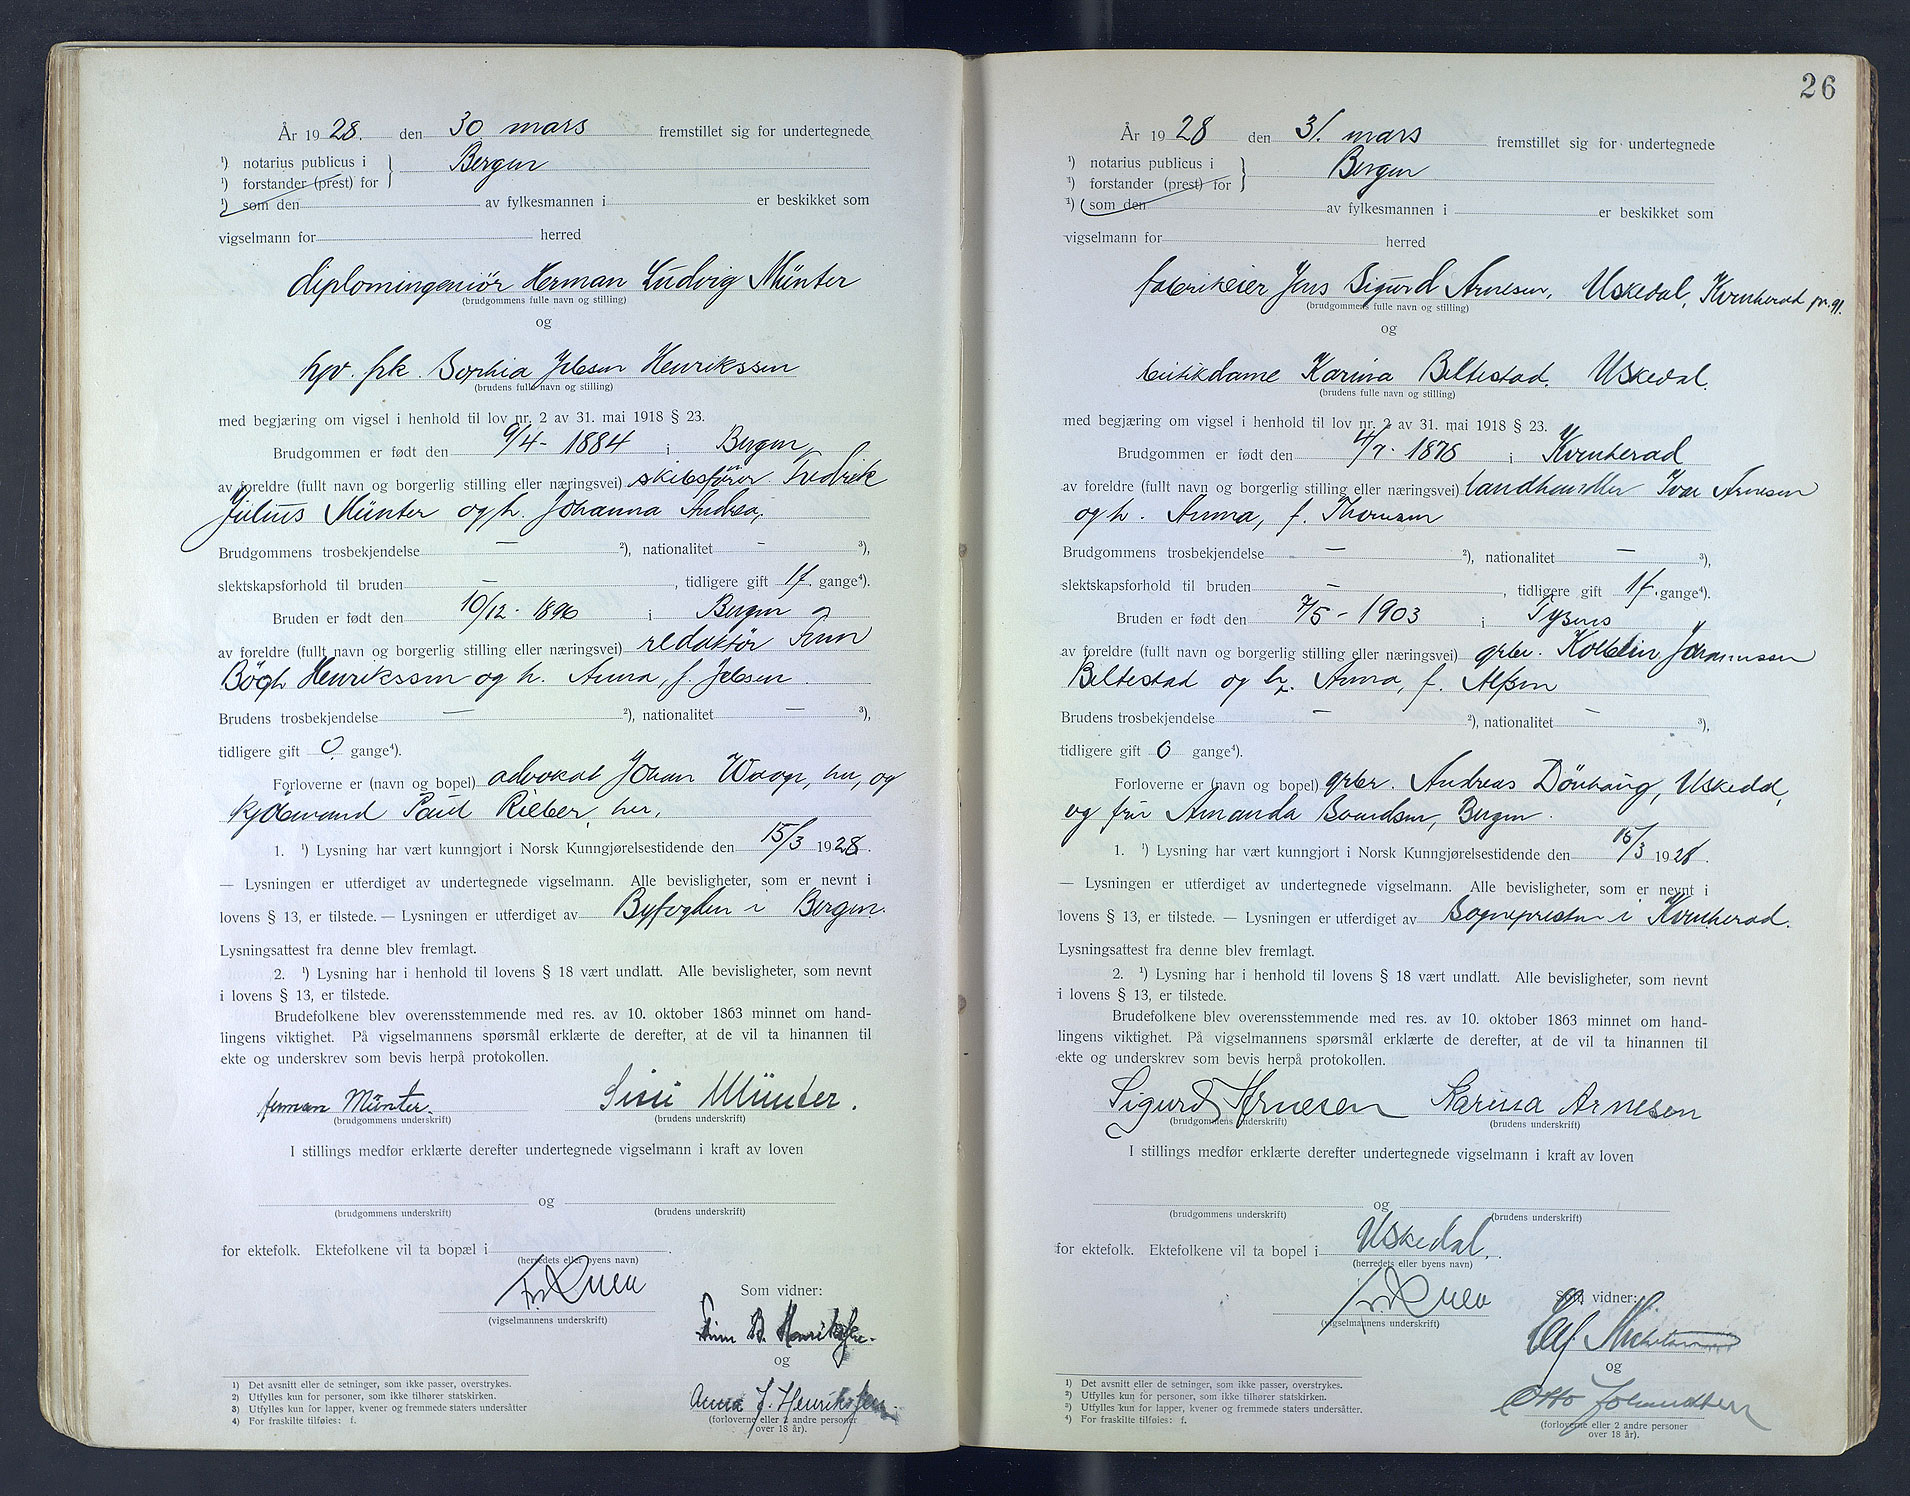 År 1928. den 30. mars fremstillet sig for undertegnede
¹) notarius publicus i } Bergen
¹) forstander (prest) for
¹) som den av fylkesmannen i er beskikket som
vigselmann for herred
diplomingeniör Herman Ludvig Münter
(brudgommens fulle navn og stilling)
og
hpv. frk. Sophia Jebsen Henrikssen
(brudens fulle navn og stilling)
med begjæring om vigsel i henhold til lov nr. 2 av 31. mai 1918 § 23.
Brudgommen er født den 9/4 - 1884 i Bergen
av foreldre (fullt navn og borgerlig stilling eller næringsvei) skibsfører Fredrik
Julius Münter og h. Johanna Andrea,
Brudgommens trosbekjendelse — ²), nationalitet — ³),
slektskapsforhold til bruden — , tidligere gift 1f. gange⁴).
Bruden er født den 10/12 - 1896 i Bergen
av foreldre (fullt navn og borgerlig stilling eller næringsvei) redaktör Finn
Bögh Henrikssen og h. Anna, f. Jebsen.
Brudens trosbekjendelse — ²), nationalitet — ³),
tidligere gift 0 gange⁴).
Forloverne er (navn og bopel) advokat Johan Waage, her, og
kjöbmand Paul Rieber, her,
1. ¹) Lysning har vært kunngjort i Norsk Kunngjørelsestidende den 15/3 1928.
— Lysningen er utferdiget av undertegnede vigselmann. Alle bevisligheter, som er nevnt i
lovens § 13, er tilstede. — Lysningen er utferdiget av Byfogden i Bergen.
Lysningsattest fra denne blev fremlagt.
2. ¹) Lysning har i henhold til lovens § 18 vært undlatt. Alle bevisligheter, som nevnt
i lovens § 13, er tilstede.
Brudefolkene blev overensstemmende med res. av 10. oktober 1863 minnet om hand-
lingens viktighet. På vigselmannens spørsmål erklærte de derefter, at de vil ta hinannen til
ekte og underskrev som bevis herpå protokollen.
Herman Münter. Sisi Münter.
(brudgommens underskrift) (brudens underskrift)
I stillings medfør erklærte derefter undertegnede vigselmann i kraft av loven
og
(brudgommens underskrift) (brudens underskrift)
for ektefolk. Ektefolkene vil ta bopæl i .
(herredets eller byens navn)
(vigselmannens underskrift)
Som vidner:
Finn B. Henrikssen.
og
Anna J. Henrikssen
(forloverne eller 2 andre personer
over 18 år).
1) Det avsnitt eller de setninger, som ikke passer, overstrykes.
2) Utfylles kun for personer, som ikke tilhører statskirken.
3) Utfylles kun for lapper, kvener og fremmede staters undersåtter
4) For fraskilte tilføies: f.
26
År 1928 den 31. mars fremstillet sig for undertegnede
¹) notarius publicus i } Bergen
¹) forstander (prest) for
¹) som den av fylkesmannen i er beskikket som
vigselmann for herred
fabrikeier Jens Sigurd Arnesen, Uskedal, Kvinherad pr. gl.
(brudgommens fulle navn og stilling)
og
butikdame Karina Beltestad, Uskedal.
(brudens fulle navn og stilling)
med begjæring om vigsel i henhold til lov nr. 2 av 31. mai 1918 § 23.
Brudgommen er født den 4/7 - 1878 i Kvinherad
av foreldre (fullt navn og borgerlig stilling eller næringsvei) landhandler Ivar Arnesen
og h. Anna, f. Thomsen
Brudgommens trosbekjendelse — ²), nationalitet — ³),
slektskapsforhold til bruden — , tidligere gift 1f. gange⁴).
Bruden er født den 7/5 - 1903 i Tysnes
av foreldre (fullt navn og borgerlig stilling eller næringsvei) grbr. Kolbein Johannessen
Beltestad og h. Anna, f. Alfsen
Brudens trosbekjendelse — ²), nationalitet — ³),
tidligere gift 0 gange⁴).
Forloverne er (navn og bopel) grbr. Andreas Dönhaug, Uskedal,
og fru Amanda Baardsen, Bergen.
1. ¹) Lysning har vært kunngjort i Norsk Kunngjørelsestidende den 15/3 1928.
— Lysningen er utferdiget av undertegnede vigselmann. Alle bevisligheter, som er nevnt i
lovens § 13, er tilstede. — Lysningen er utferdiget av Sognepresten i Kvinherad.
Lysningsattest fra denne blev fremlagt.
2. ¹) Lysning har i henhold til lovens § 18 vært undlatt. Alle bevisligheter, som nevnt
i lovens § 13, er tilstede.
Brudefolkene blev overensstemmende med res. av 10. oktober 1863 minnet om hand-
lingens viktighet. På vigselmannens spørsmål erklærte de derefter, at de vil ta hinannen til
ekte og underskrev som bevis herpå protokollen.
Sigurd Arnesen Karina Arnesen
(brudgommens underskrift) (brudens underskrift)
I stillings medfør erklærte derefter undertegnede vigselmann i kraft av loven
og
(brudgommens underskrift) (brudens underskrift)
for ektefolk. Ektefolkene vil ta bopel i Uskedal.
(herredets eller byens navn)
(vigselmannens underskrift)
Som vidner:
og
Otto
(forloverne eller 2 andre personer
over 18 år).
¹) Det avsnitt eller de setninger, som ikke passer, overstrykes.
²) Utfylles kun for personer, som ikke tilhører statskirken.
³) Utfylles kun for lapper, kvener og fremmede staters undersåtter.
⁴) For fraskilte tilføies: f.